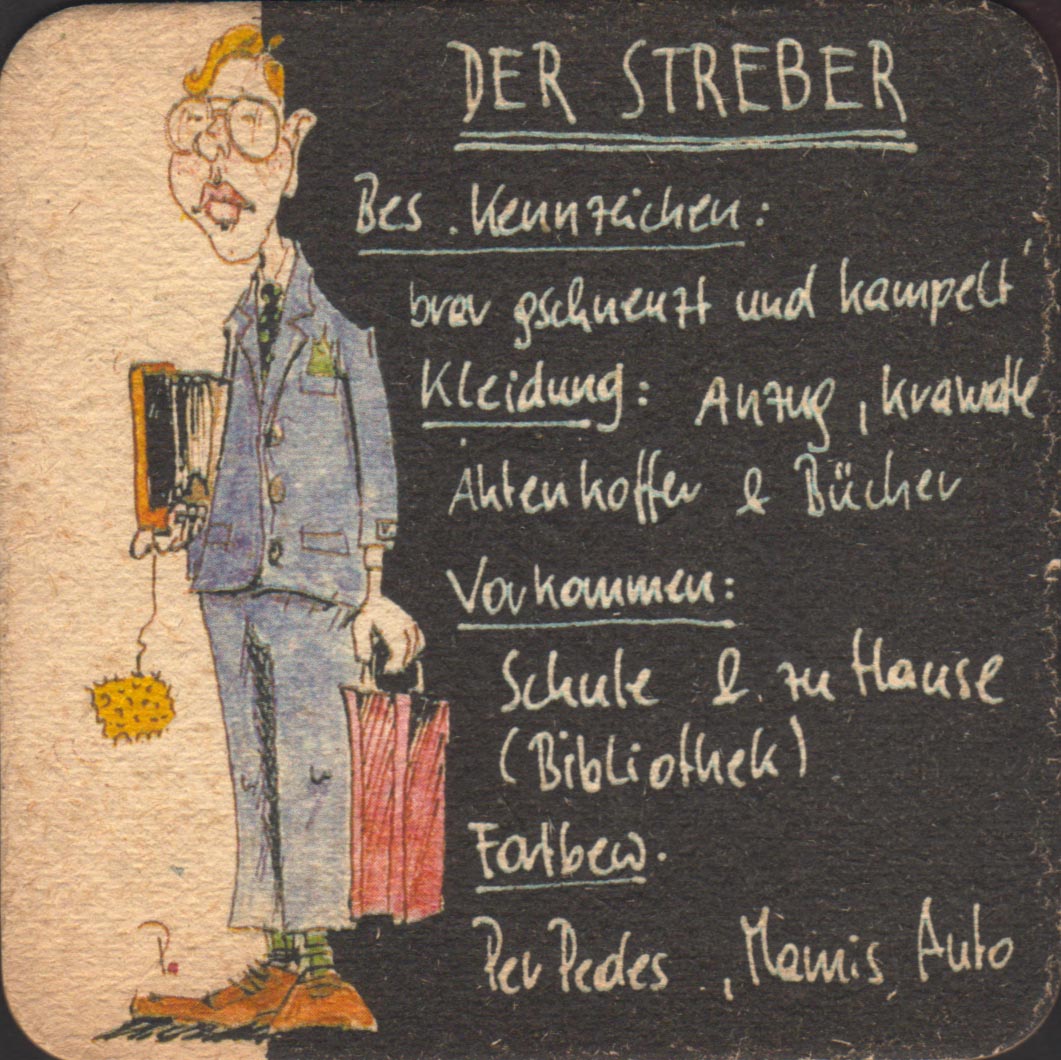 DER STREBER
Bes. Kennzeichen:
brav gschneuzt und kampelt
Kleidung: Anzug, Krawatte
Aktenkoffer & Bücher
Vorkommen:
Schule & zu Hause
(Bibliothek)
Fortbew.
Per Pedes, Mamis Auto
P.